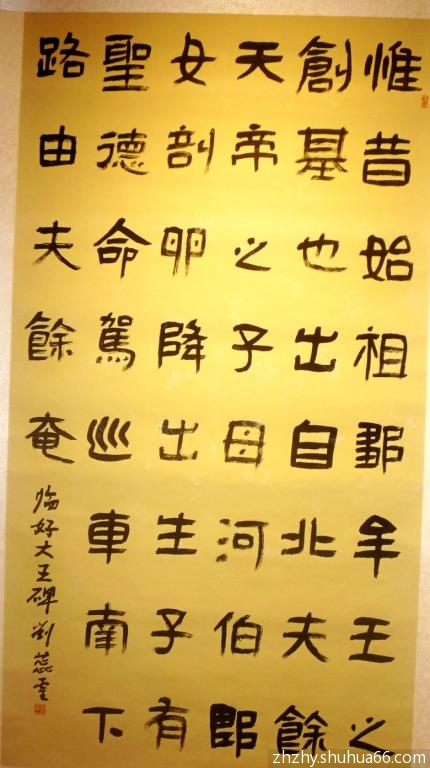 惟昔始祖鄒牟王之
創基也出自北夫餘
天帝之子母河伯郎
女剖卵降出生子有
聖德命駕巡車南下
路由夫餘奄
臨好大王碑 劉蕊雲
zhzhy.shuhua66.com